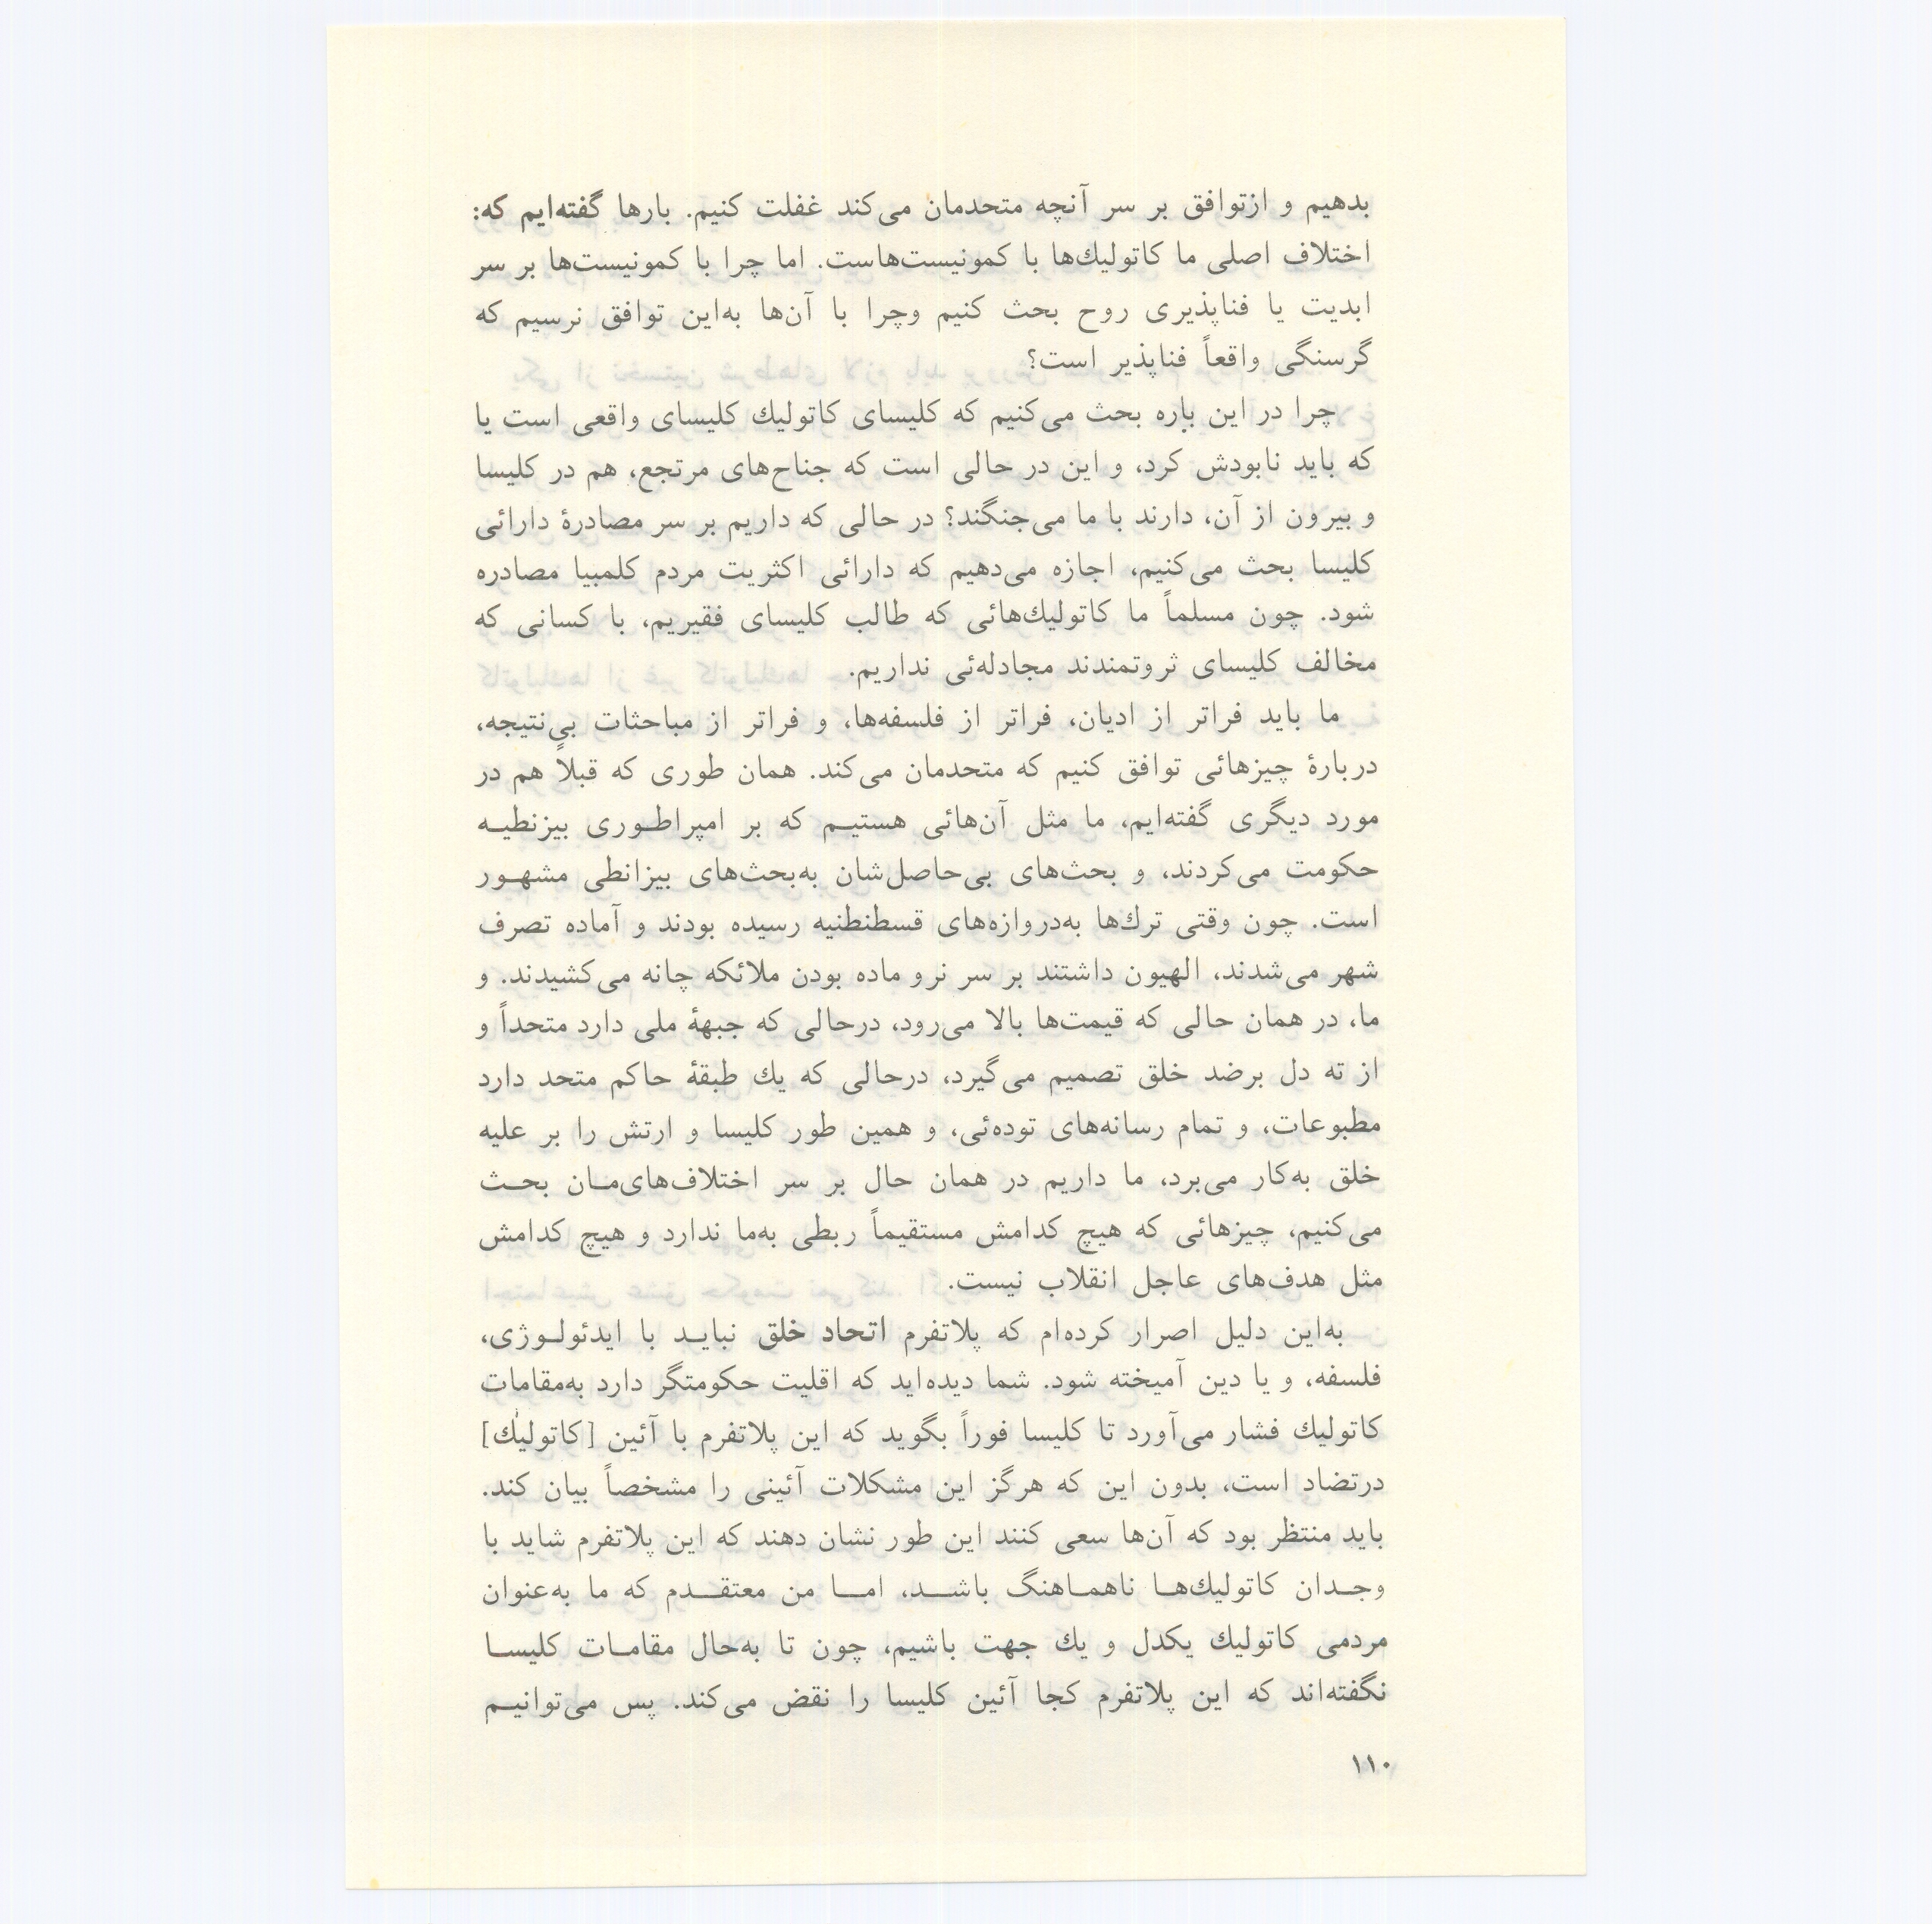 بدهیم و ازتوافق بر سر آنچه متحدمان می‌کند غفلت کنیم. بارها گفته‌ایم که:
اختلاف اصلی ما کاتولیك‌ها با کمونیست‌هاست. اما چرا با کمونیست‌ها بر سر
ابدیت یا فناپذیری روح بحث کنیم وچرا با آن‌ها به‌این توافق نرسیم که
گرسنگی واقعاً فناپذیر است؟
چرا در این باره بحث می‌کنیم که کلیسای کاتولیك کلیسای واقعی است یا
که باید نابودش کرد، و این در حالی است که جناح‌های مرتجع، هم در کلیسا
و بیرون از آن، دارند با ما می‌جنگند؟ در حالی که داریم بر سر مصادرهٔ دارائی
کلیسا بحث می‌کنیم، اجازه می‌دهیم که دارائی اکثریت مردم کلمبیا مصادره
شود. چون مسلماً ما کاتولیك‌هائی که طالب کلیسای فقیریم، با کسانی که
مخالف کلیسای ثروتمندند مجادله‌ئی نداریم.
ما باید فراتر از ادیان، فراتر از فلسفه‌ها، و فراتر از مباحثات بی‌نتیجه،
دربارهٔ چیزهائی توافق کنیم که متحدمان می‌کند. همان طوری که قبلاً هم در
مورد دیگری گفته‌ایم، ما مثل آن‌هائی هستیـم که بر امپراطـوری بیزنطیـه
حکومت می‌کردند، و بحث‌های بی‌حاصل‌شان به‌بحث‌های بیزانطی مشهـور
است. چون وقتی ترك‌ها به‌دروازه‌های قسطنطنیه رسیده بودند و آماده تصرف
شهر می‌شدند، الهیون داشتند بر سر نرو ماده بودن ملائکه چانه می‌کشیدند. و
ما، در همان حالی که قیمت‌ها بالا می‌رود، درحالی که جبههٔ ملی دارد متحداً و
از ته دل برضد خلق تصمیم می‌گیرد، درحالی که یك طبقهٔ حاکم متحد دارد
مطبوعات، و تمام رسانه‌های توده‌ئی، و همین طور کلیسا و ارتش را بر علیه
خلق به‌کار می‌برد، ما داریم در همان حال بر سر اختلاف‌های‌مـان بحـث
می‌کنیم، چیزهائی که هیچ کدامش مستقیماً ربطی به‌ما ندارد و هیچ کدامش
مثل هدف‌های عاجل انقلاب نیست.
به‌این دلیل اصرار کرده‌ام که پلاتفرم اتحاد خلق نبایـد با ایدئولـوژی،
فلسفه، و یا دین آمیخته شود. شما دیده‌اید که اقلیت حکومتگر دارد به‌مقامات
کاتولیك فشار می‌آورد تا کلیسا فوراً بگوید که این پلاتفرم با آئین [کاتولیك]
درتضاد است، بدون این که هرگز این مشکلات آئینی را مشخصاً بیان کند.
باید منتظر بود که آن‌ها سعی کنند این طور نشان دهند که این پلاتفرم شاید با
وجـدان کاتولیك‌هـا ناهمـاهنگ باشــد، امــا من معتقــدم که ما به‌عنوان
مردمی کاتولیك یکدل و یك جهت باشیم، چون تا به‌حال مقامـات کلیسـا
نگفته‌اند که این پلاتفرم کجا آئین کلیسا را نقض می‌کند. پس می‌توانیـم
۱۱۰